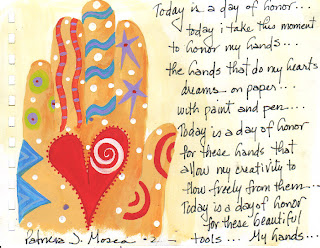 Today is a day of honor...
today i take this moment
to honor my hands...
the hands that do my hearts
dreams... on paper...
with paint and pen....
Today is a day of honor
for these hands that
allow my creativity to
flow freely from them....
Today is a day of honor
for these beautiful
tools.... My hands...
Patricia J. Mosca -2-